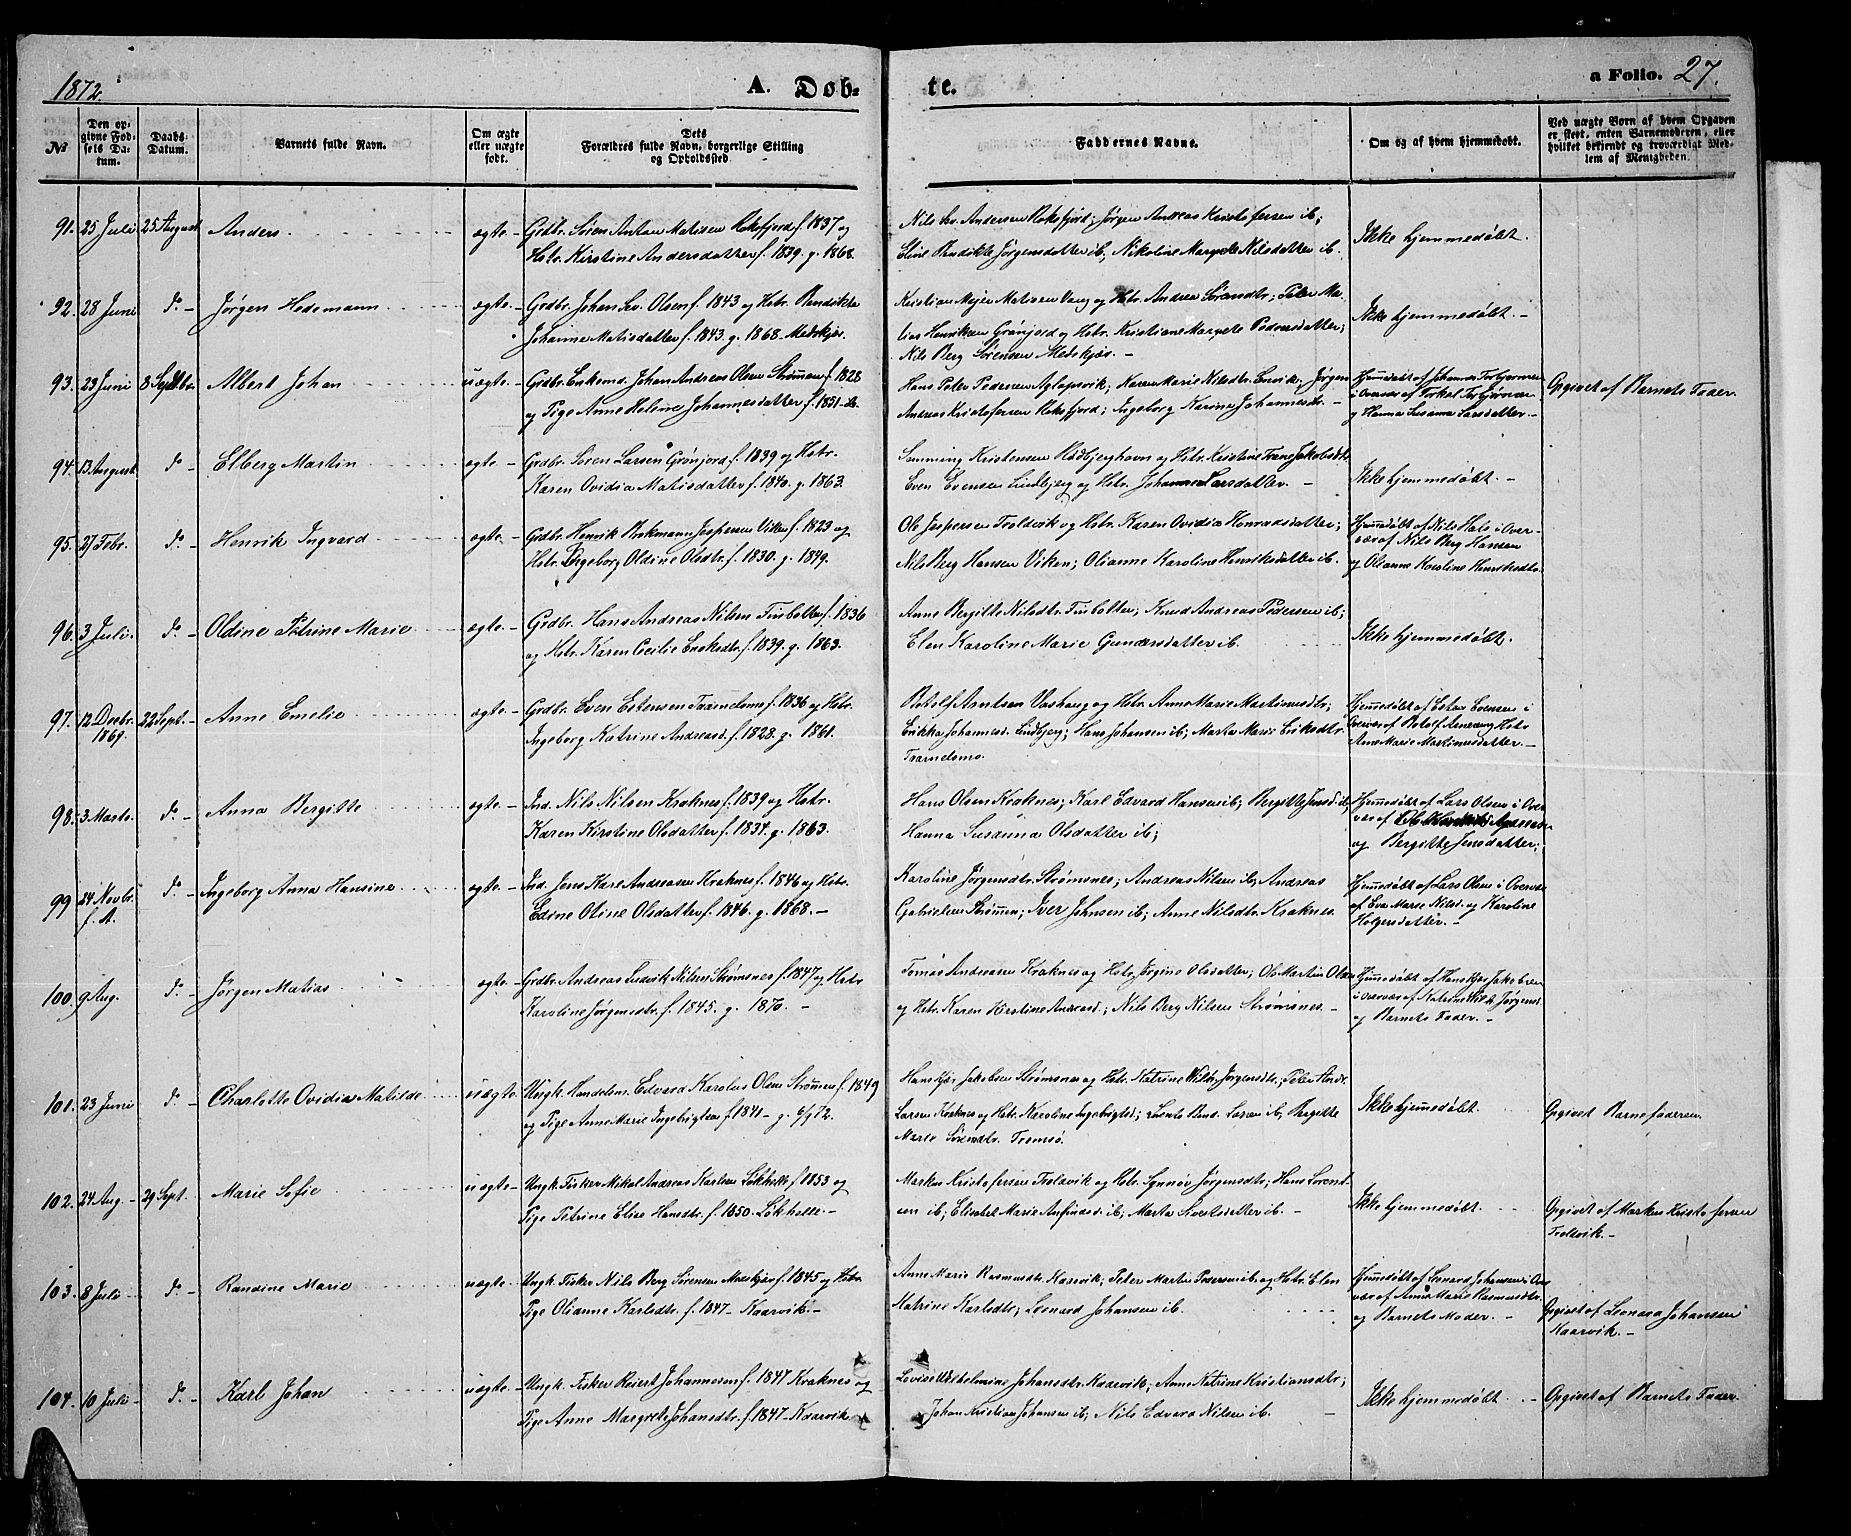 1872.
A. Døb-
te.
a Folio. 27.
No
Den op-
givne Fød-
sels Da-
tum.
Daabs-
Datum.
Barnets fulde Navn.
Om ægte
eller uægte
født.
Dets
Forældres fulde Navn, borgerlige Stilling
og Opholdssted.
Faddernes Navne.
Om og af hvem hjemmedøbt.
Ved uægte Børn af hvem Opgaven
er skeet, enten Barnemoderen, eller
hvilket bekjendt og troværdigt Med-
lem af Menigheden.
91. 25 Juli 25 August Anders ægte. Grdbr. Sören Anton Matisen Rekfjord f. 1837 og
Hstr. Kirstine Andersdatter f. 1839. g. 1868.
Nils Sv. Andersen Rekfjord; Jørgen Andreas Kristofersen ib;
Eline Bendikte Jørgensdatter ib; Nikoline Margrete Nilsdatter ib.
Ikke hjemmedøbt.
92. 28 Juni do Jørgen Hedemann ægte. Grdbr. Johan Sev. Olsen f. 1843 og Hstr. Bendikte
Johanne Matisdatter f. 1843. g. 1868 Medskjær.
Kristian Mejer Matisen Vang og Hstr. Andrea Sörensdtr; Peter Ma-
tias Henriksen Grønjord og Hstr. Kristiane Margrete Pedersdatter;
Nils Berg Sörensen Medskjær.
Ikke hjemmedøbt.
93. 23 Juni 8 Septbr. Albert Johan uægte. Grdbr. Enkemd. Johan Andreas Olsen Strømmen f. 1828
og Pige Anne Heline Johannesdatter f. 1851
Hans Peter Pedersen Aglapsvik; Karen Marie Nilsdtr. Jørgen
Andreas Kristofersen Rekfjord; Ingeborg Karine Johannesdtr.
Hjemmedøbt af Johannes Torbjørnsen
i Overvær af Torkel Torbjørnsen
og Hanna Susanna Larsdatter.
Opgivet af Barnets Fader.
94. 13 August do Elberg Martin ægte Grdbr. Sören Larsen Grønjord f. 1839 og Hstr.
Karen Ovidia Matisdatter f. 1840. g. 1863.
Kristensen Rödbjerghavn og Hstr. Kristine Trane Jakobsdtr.
Even Evensen Lindbjerg og Hstr. Johanna Larsdatter.
Ikke hjemmedøbt.
95. 27 Febr. do Henrik Ingvard ægte Grdbr. Henrik Brekmann Jespersen Viken f. 1823 og
Hstr. Ingeborg Oldine Olsdtr. f. 1830. g. 1849.
Ole Jespersen Troldvik og Hstr. Karen Ovidia Konradsdatter;
Nils Berg Hansen Viken; Olianne Karoline Henriksdatter ib.
Hjemmedøbt af Nils Hals i Over-
vær af Nils Berg Hansen
og Olianne Karoline Henriksdtr.
96. 3 Juli. do Oldine Petrine Marie ægte Grdbr. Hans Andreas Nilsen Finbotten f. 1836
og Hstr. Karen Cecilie Enoksdtr. f. 1839. g. 1863.
Anne Bergitte Nilsdtr. Finbotten; Knud Andreas Pedersen ib;
Elen Karoline Marie Gundersdatter ib.
Ikke hjemmedøbt.
97. 12 Decbr. 1869. 22 Sept. Anne Emelie ægte. Grdbr. Even Estensen Taarnelsmo f. 1836 og Hstr.
Ingeborg Katrine Andreasd. f. 1828. g. 1861.
Botolf Arntsen Vashaug og Hstr. Anne Marie Martinusdtr;
Erikka Johannesd. Lindbjerg; Hans Johansen ib; Marta Marie Eriksdtr.
Taarnelsmo.
Hjemmedøbt af Esten Evensen i
Overvær af Botolf Arntsen og Hstr.
Anne Marie Martinusdatter.
98. 3 Marts. do Anna Bergitte ægte. Ind. Nils Nilsen Kraknes f. 1839 og Hstr.
Karen Kirstine Olsdatter f. 1834. g. 1863.
Hans Olsen Kraknes; Karl Edvard Hansen ib; Bergitte Jensd. ib;
Hanna Susanna Olsdatter ib;
Hjemmedøbt af Lars Olsen i Over-
vær af Andreasen
og Bergitte Jensdatter;
99 24 Novbr. f. A. do Ingeborg Anna Hansine ægte Ind. Jens Kare Andreasen Kraknes f. 1846 og Hstr.
Edine Oline Olsdatter f. 1846. g. 1868.
Karoline Jørgensdtr. Strømsnes; Andreas Nilsen ib; Andreas
Gabrielsen Strømmen; Iver Johnsen ib; Anne Nilsdtr. Kraknes.
Hjemmedøbt af Lars Olsen i Overvær
af Eva Marie Nilsd. og Karoline
Holgersdatter.
100. 9 Aug. do Jørgen Matias ægte Grdbr. Andreas Ludvik Nilsen Strømsnes f. 1847 og Hstr.
Karoline Jørgensdtr. f. 1845. g. 1870.
Tomas Andreasen Kraknes og Hstr. Jørgine Olsdatter; Ole Martin Olsen
og Hstr. Karen Kirstine Andreasd.; Nils Berg Nilsen Strømsnes.
Hjemmedøbt af Hans Kjær Jakobsen
i Overvær af Katrine Wilh. Jørgensd.
og Barnets Fader.
101. 23 Juni do Charlotte Ovidia Matilde uægte. Ungk. Handelsm. Edvard Karolius Olsen Strømmen f. 1849
og Pige Anne Marie Ingebrigtsen f. 1841 g. 6/9 72.
Hans Kjær Jakobsen Strømsnes og Hstr. Katrine Wilh. Jørgensdtr.; Peter Andr.
Larsen Kraknes og Hstr. Karoline Ingebrigtsd; Bend. Larsen ib; Bergitte
Marie Sörensdtr. Tromsø.
Ikke hjemmedøbt.
Opgivet Barnefaderen
102. 24 Aug. 29 Sept. Marie Sofie uægte Ungk. Fisker Mikal Andreas Karlsen Løkhelle f. 1853 og
Pige Petrine Elise Hansdtr. f. 1850. Løkhelle.
Markus Kristofersen Trolvik og Hstr. Synnøv Jørgensdtr; Hans Lorent-
sen ib; Elisabet Marie Anfindsd. ib; Marta Sivertsdatter ib.
Ikke hjemmedøbt.
Opgivet af Markus Kristofersen
Trolvik.
103. 8 Juli do Randine Marie uægte Ungk. Fisker Nils Berg Sörensen Medskjær f. 1845 og
Pige Olianne Karlsdtr. f. 1847 Kaarvik.
Anne Marie Rasmusdtr. Kaarvik; Peter Martin Pedersen ib. og Hstr. Elen
Katrine Karlsdtr; Leonard Johansen ib.
Hjemmedøbt af Leonard Johansen i Over-
vær af Anne Marie Rasmusdtr.
og Barnets Moder.
Opgivet af Leonard Johansen
Kaarvik.
104. 10 Juli do Karl Johan uægte. Ungk. Fisker Reiert Johannesen f. 1847 Kraknes og
Pige Anne Margrete Johansdtr. f. 1847 Kaarvik
Lovise Wilhelmine Johansdtr. Kaarvik; Anne Katrine Kristiansdtr;
Johan Kristian Johansen ib; Nils Edvard Nilsen ib.
Ikke hjemmedøbt.
Opgivet af Barnets Fader.